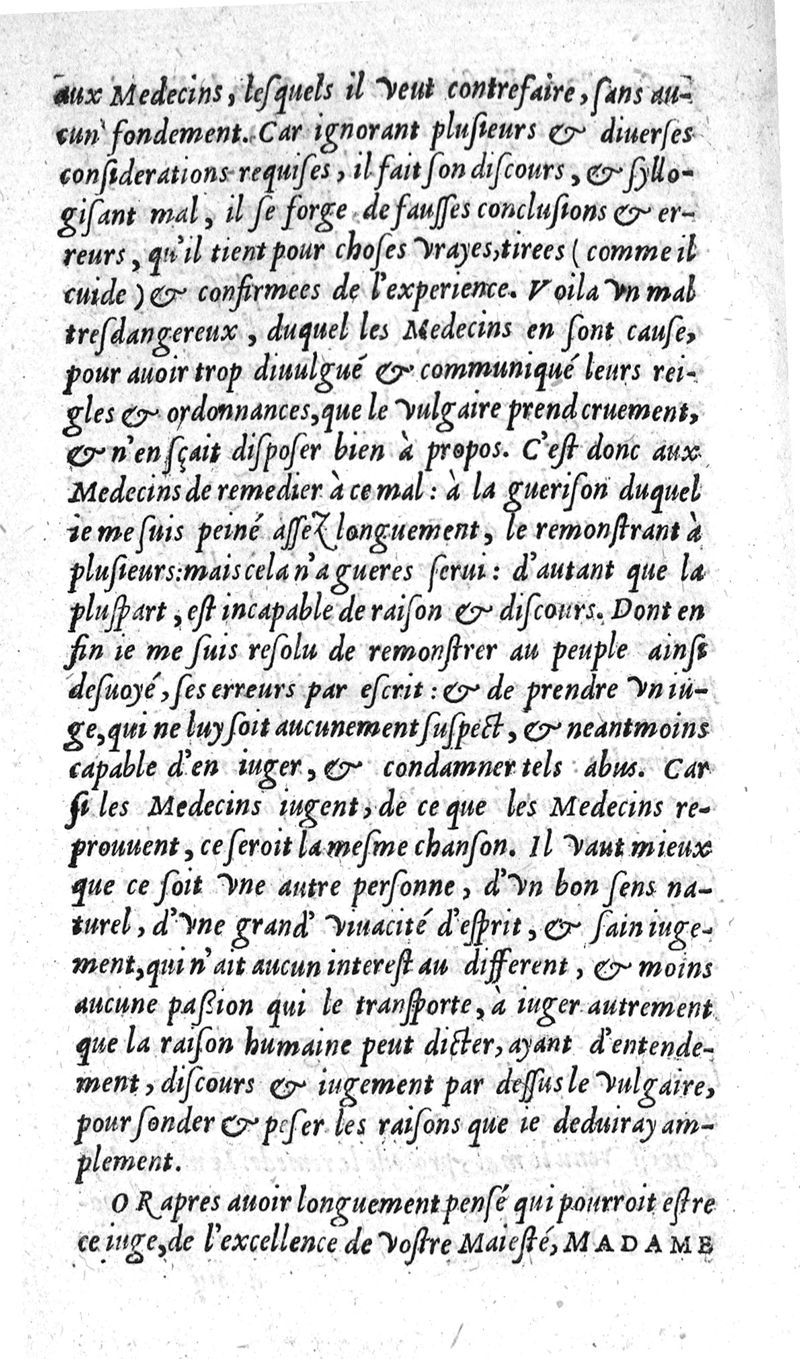 aux Medecins, leſquels il veut contrefaire, ſans au-
cun fondement. Car ignorant pluſieurs & diuerſes
conſiderations requiſes, il fait ſon diſcours, & ſyllo-
giſant mal, il ſe forge de fauſſes concluſions & er-
reurs, qu'il tient pour choſes vrayes, tirees (comme il
cuide) & confirmees de l'experience. Voila vn mal
treſdangereux, duquel les Medecins en ſont cauſe,
pour auoir trop diuulgué & communiqué leurs rei-
gles & ordonnances, que le vulgaire prend cruement,
& n'en ſçait diſpoſer bien à propos. C'eſt donc aux
Medecins de remedier à ce mal: à la gueriſon duquel
ie me ſuis peiné aſſez longuement, le remonſtrant à
pluſieurs: mais cela n'a gueres ſerui: d'autant que la
pluſpart, eſt incapable de raiſon & diſcours. Dont en
fin ie me ſuis reſolu de remonſtrer au peuple ainſi
deſuoyé, ſes erreurs par eſcrit: & de prendre vn iu-
ge, qui ne luy ſoit aucunement ſuſpect, & neantmoins
capable d'en iuger, & condamner tels abus. Car
ſi les Medecins iugent, de ce que les Medecins re-
prouuent, ce ſeroit la meſme chanſon. Il vaut mieux
que ce ſoit vne autre perſonne, d'vn bon ſens na-
turel, d'vne grand' viuacité d'eſprit, & ſain iuge-
ment, qui n'ait aucun intereſt au different, & moins
aucune paßion qui le tranſporte, à iuger autrement
que la raiſon humaine peut dicter, ayant d'entende-
ment, diſcours & iugement par deſſus le vulgaire,
pour ſonder & peſer les raiſons que ie deduiray am-
plement.
OR apres auoir longuement penſé qui pourroit eſtre
ce iuge, de l'excellence de voſtre Maieſté, MADAME